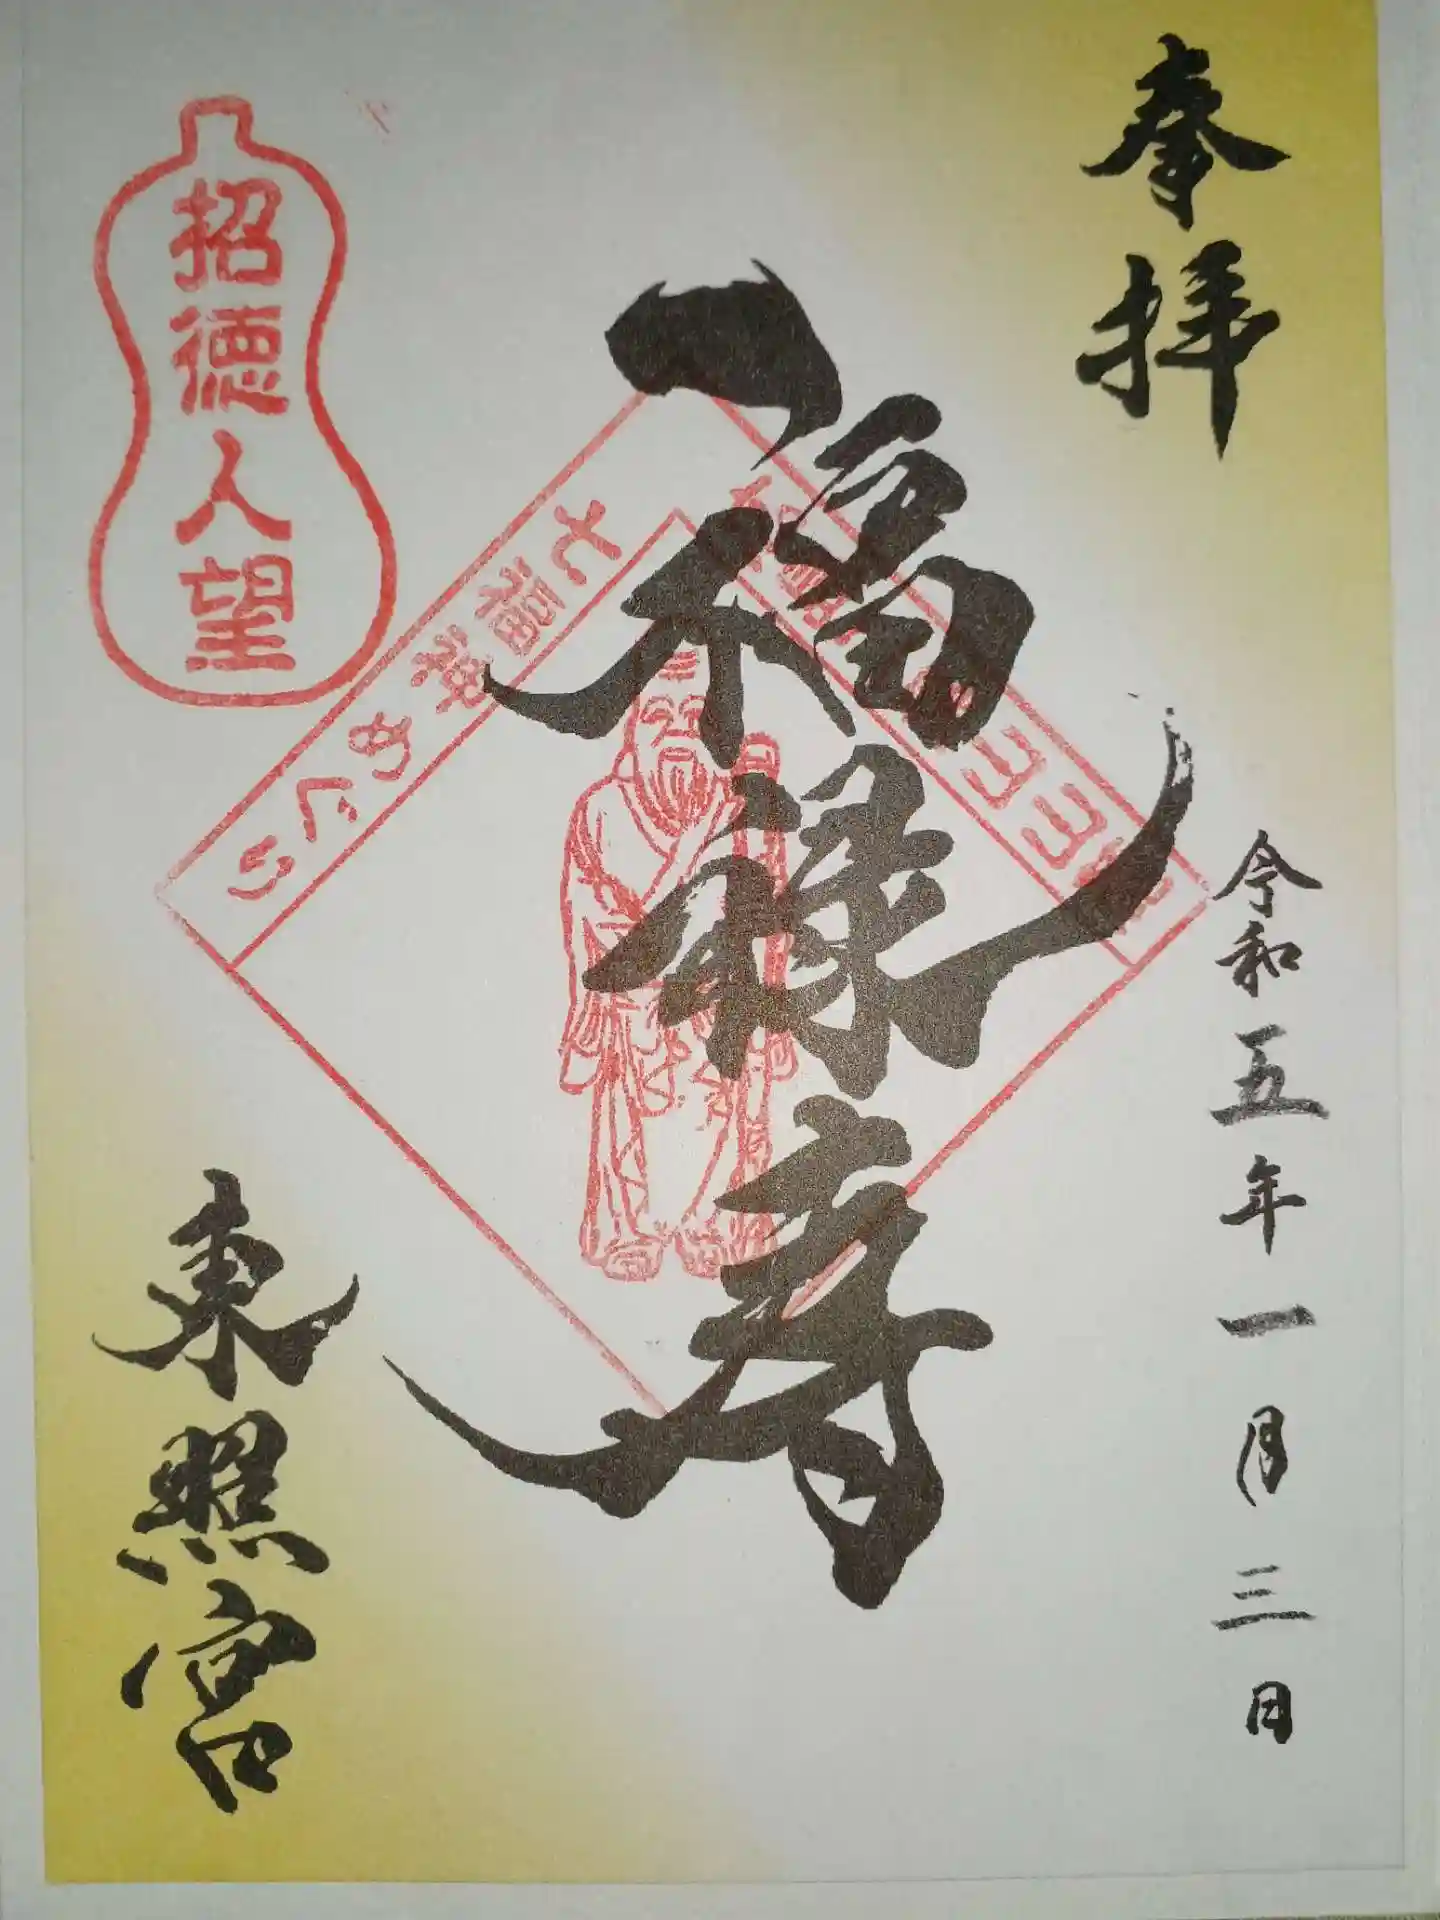 奉拝
令和五年一月三日
福禄寿
招徳人望
七福神めぐり
東照宮